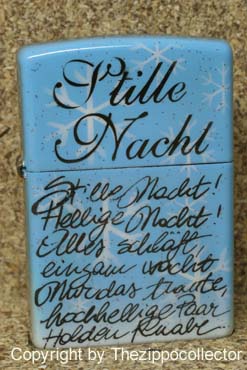 Stille
Nacht
Stille Nacht!
Heilige Nacht!
Alles schläft,
einsam wacht
Nur das traute,
hochheilige Paar
Holder Knabe
Copyright by Thezippocollector